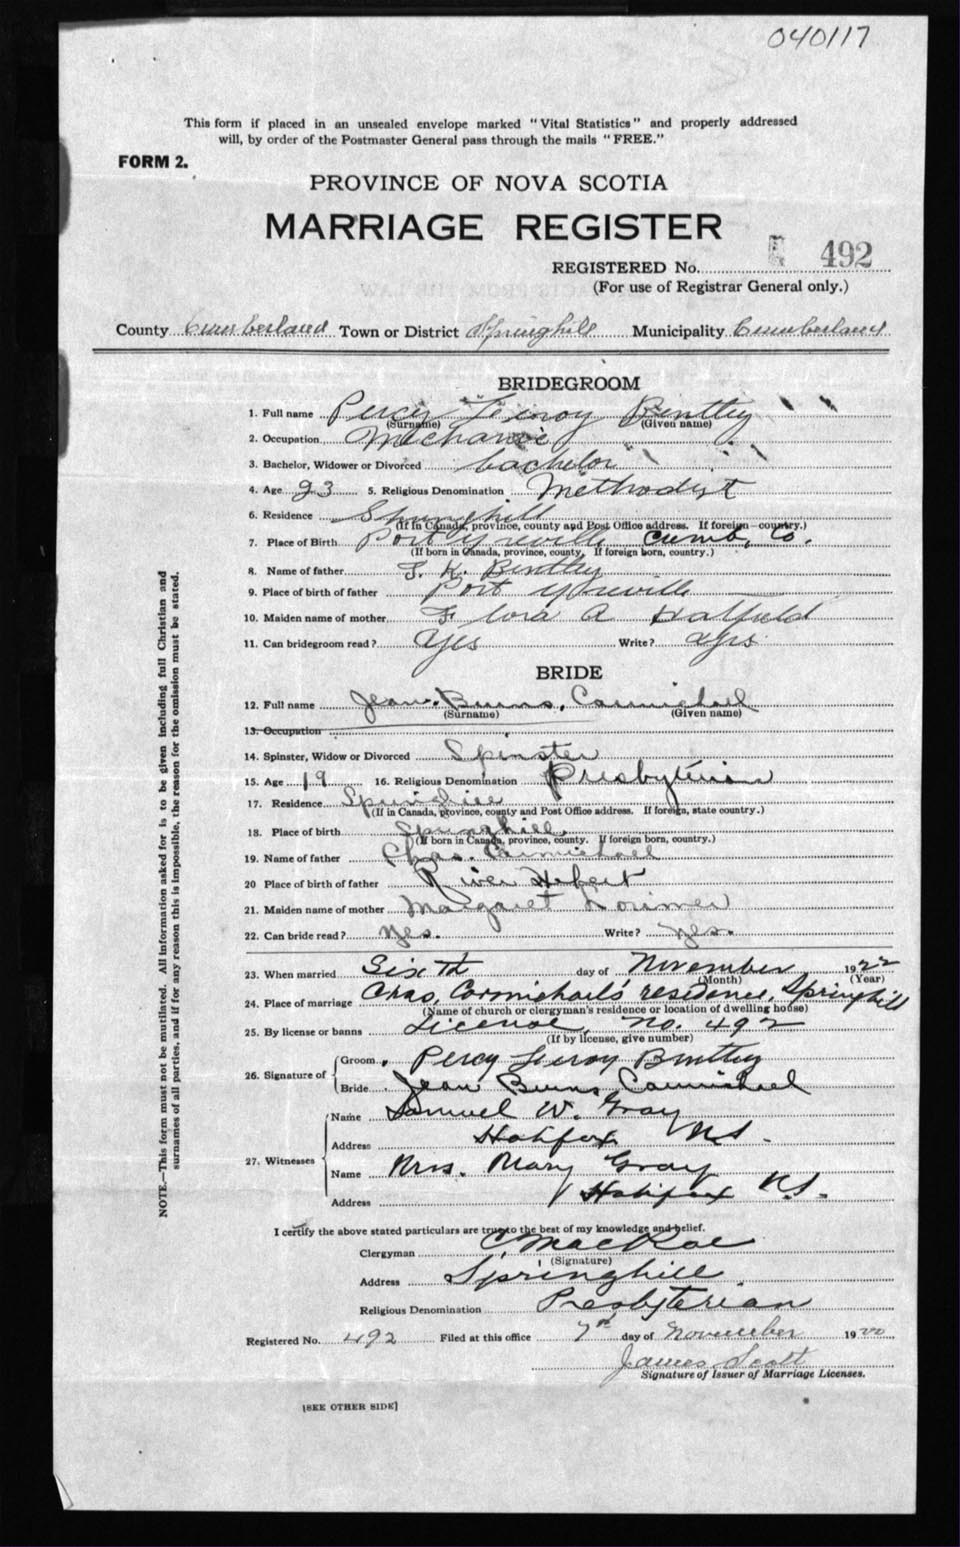 040117
This form if placed in an unsealed envelope marked "Vital Statistics" and properly addressed
will, by order of the Postmaster General pass through the mails "FREE."
FORM 2.
PROVINCE OF NOVA SCOTIA
MARRIAGE REGISTER
REGISTERED No. 492
(For use of Registrar General only.)
County Cumberland Town or District Springhill Municipality Cumberland
BRIDEGROOM
1. Full name Percy Leroy Bentley
(Surname) (Given name)
2. Occupation Mechanic
3. Bachelor, Widower or Divorced bachelor
4. Age 23 5. Religious Denomination Methodist
6. Residence Springhill
(If in Canada, province, county and Post Office address. If foreign—country.)
7. Place of Birth Port Greville Cumb. Co.
(If born in Canada, province, county. If foreign born, country.)
8. Name of father Bentley
9. Place of birth of father Port Greville
10. Maiden name of mother Flora A Hatfield
11. Can bridegroom read? Yes Write? Yes
BRIDE
12. Full name Jean Burns Carmichael
(Surname) (Given name)
13. Occupation
14. Spinster, Widow or Divorced Spinster
15. Age 19 16. Religious Denomination Presbyterian
17. Residence Springhill
(If in Canada, province, county and Post Office address. If foreign, state country.)
18. Place of birth Springhill
(If born in Canada, province, county. If foreign born, country.)
19. Name of father Chas. Carmichael
20 Place of birth of father River Hebert
21. Maiden name of mother Margaret Lorimer
22. Can bride read? Yes. Write? Yes.
23. When married Sixth day of November 1922
(Month) (Year)
24. Place of marriage Chas. Carmichael's residence, Springhill
(Name of church or clergyman's residence or location of dwelling house)
25. By license or banns License, No. 492
(If by license, give number)
26. Signature of
Groom Percy Leroy Bentley
Bride Jean Burns Carmichael
27. Witnesses
Name Samuel W. Gray
Address Halifax N.S.
Name Mrs. Mary Gray
Address Halifax N.S.
I certify the above stated particulars are true to the best of my knowledge and belief.
Clergyman MacRae
(Signature)
Address Springhill
Religious Denomination Presbyterian
Registered No. 492 Filed at this office 7th day of November 19
James Scott
Signature of Issuer of Marriage Licenses.
[SEE OTHER SIDE]
NOTE.—This form must not be mutilated. All information asked for is to be given including full Christian and
surnames of all parties, and if for any reason this is impossible, the reason for the omission must be stated.